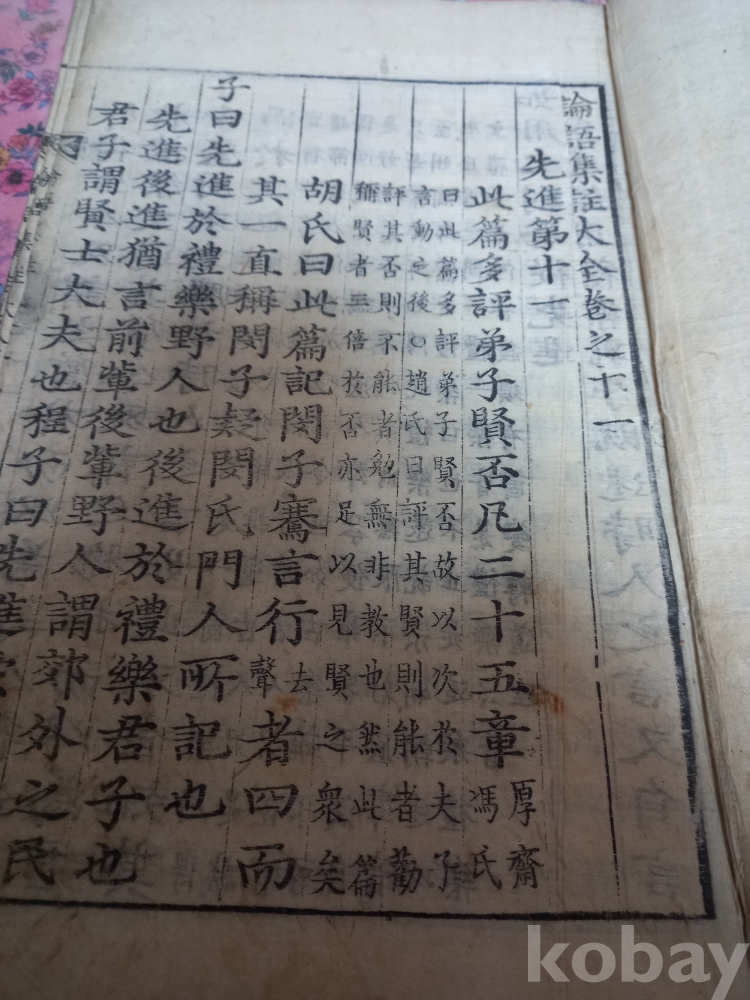 論語集註大全卷之十一
先進第十一
此篇多評弟子賢否凡二十五章厚齋
馮氏
曰此篇多評弟子賢否故以次於夫子
言動之後○趙氏曰評其賢則能者勸
評其否則不能者勉無非教也然此篇
稱賢者三倍於否亦足以見賢之衆矣
胡氏曰此篇記閔子騫言行去聲者四而
其一直稱閔子疑閔氏門人所記也
子曰先進於禮樂野人也後進於禮樂君子也
先進後進猶言前輩後輩野人謂郊外之民
君子謂賢士大夫也程子曰先進
kobay